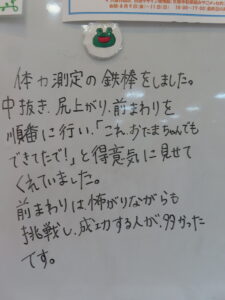 体力測定の鉄棒をしました。
中抜き、尻上がり、前まわりを
順番に行い、「これ、おたまちゃんでも
できてたで!」と得意気に見せて
くれていました。
前まわりは怖がりながらも
挑戦し、成功する人が多かった
です。